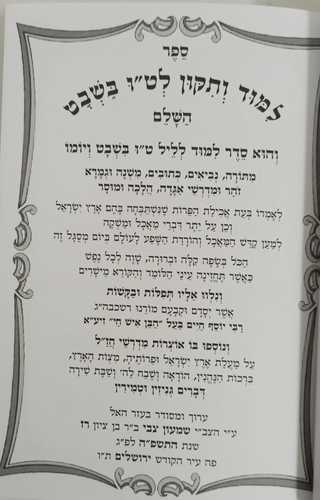 ספר
למוד ותיקון לט"ו בשבט
השלם
והוא סדר למוד לליל ט"ו בשבט ויומו
מתורה, נביאים, כתובים, משנה וגמרא
זהר ומדרשי אגדה, הלכה ומוסר
לאמרו בעת אכילת הפרות שנשתבחה בהם ארץ ישראל
וכן על יתר דברי מאכל ומשקה
למען קדש המאכל והורדת השפע לעולם ביום מסגל זה
הכל בשפה קלה וברורה, שוה לכל נפש
כאשר תחזינה עיני הלומד והקורא מישרים
ונלוו אליו תפלות ובקשות
אשר יסדם וקבעם מורנו רשכבה"ג
רבי יוסף חיים בעל "הבן איש חי" זיע"א
ונוספו בו אוצרות מדרשי חז"ל
על מעלת ארץ ישראל ופרותיה, מצות הארץ,
ברכות הנהנין, הודאה ושבח לה' ושבת שירה
דברים גניזין וטמירין
ערוך ומסודר בעזר האל
ע"י הצב"י שמעון צבי ב"ר בן ציון רז
שנת התשפ"ה לפ"ג
פה עיר הקודש ירושלים ת"ו